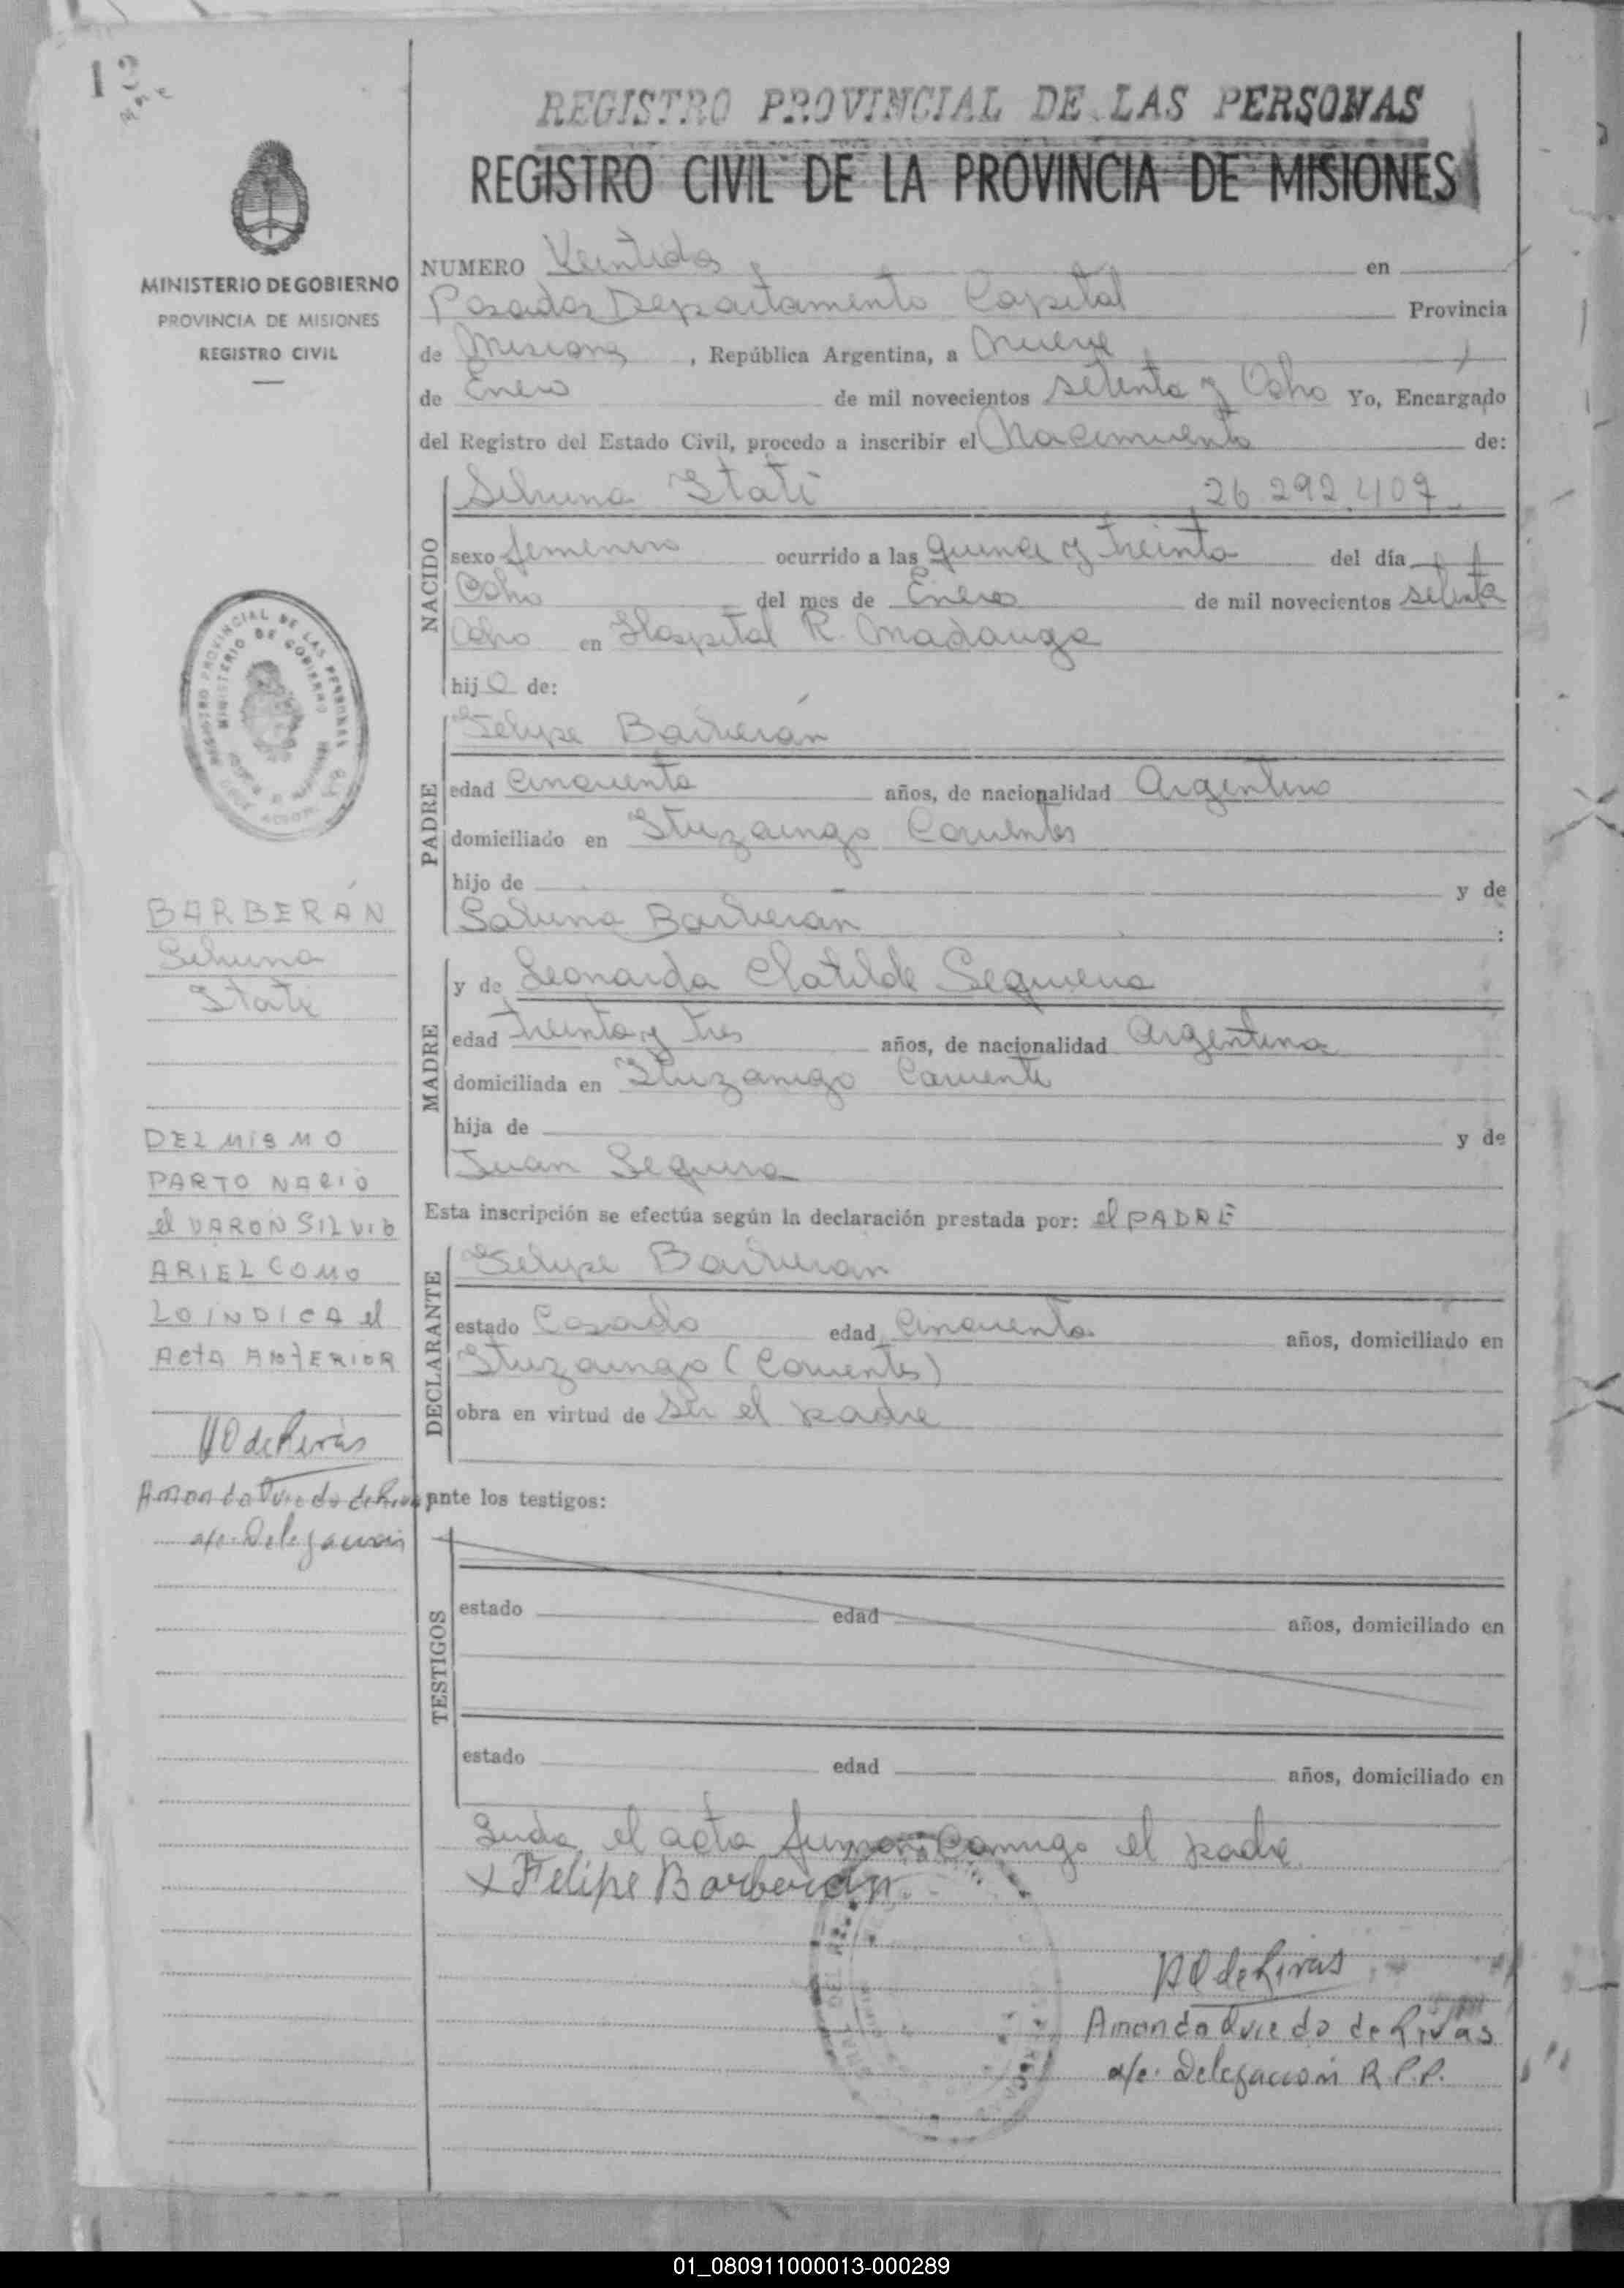 12
REGISTRO PROVINCIAL DE LAS PERSONAS
REGISTRO CIVIL DE LA PROVINCIA DE MISIONES
MINISTERIO DE GOBIERNO
PROVINCIA DE MISIONES
REGISTRO CIVIL
NUMERO Veintidos en
Posadas Departamento Capital Provincia
de Misiones, República Argentina, a Nueve
de Enero de mil novecientos setenta y Ocho Yo, Encargado
del Registro del Estado Civil, procedo a inscribir el Nacimiento de:
NACIDO
Itati 26.292.407
sexo femenino ocurrido a las quince y treinta del día
Ocho del mes de Enero de mil novecientos setenta
Ocho en Hospital R. Madariaga
hija de:
PADRE
Felipe Barberán
edad Cincuenta años, de nacionalidad Argentino
domiciliado en Ituzaingo Corrientes
hijo de y de
Sabina Barberan :
MADRE
y de Leonarda Clotilde
edad treinta y tres años, de nacionalidad Argentina
domiciliada en Ituzaingo Corrientes
hija de y de
Juan
Esta inscripción se efectúa según la declaración prestada por: el PADRE
DECLARANTE
Felipe Barberan
estado Casado edad Cincuenta años, domiciliado en
Ituzaingo (Corrientes)
obra en virtud de ser el padre
ante los testigos:
TESTIGOS
estado edad años, domiciliado en
estado edad años, domiciliado en
Leida el acta firman Conmigo el padre
x Felipe Barberán
AO de Rivas
Amanda Oviedo de Rivas
a/c. Delegación R.P.P.
BARBERÁN
Itati
DEL MISMO
PARTO NACIO
el VARON SILVIO
ARIEL COMO
LO INDICA el
ACTA ANTERIOR
AO de Rivas
Amanda Oviedo de Rivas
a/c. Delegación
01_080911000013-000289